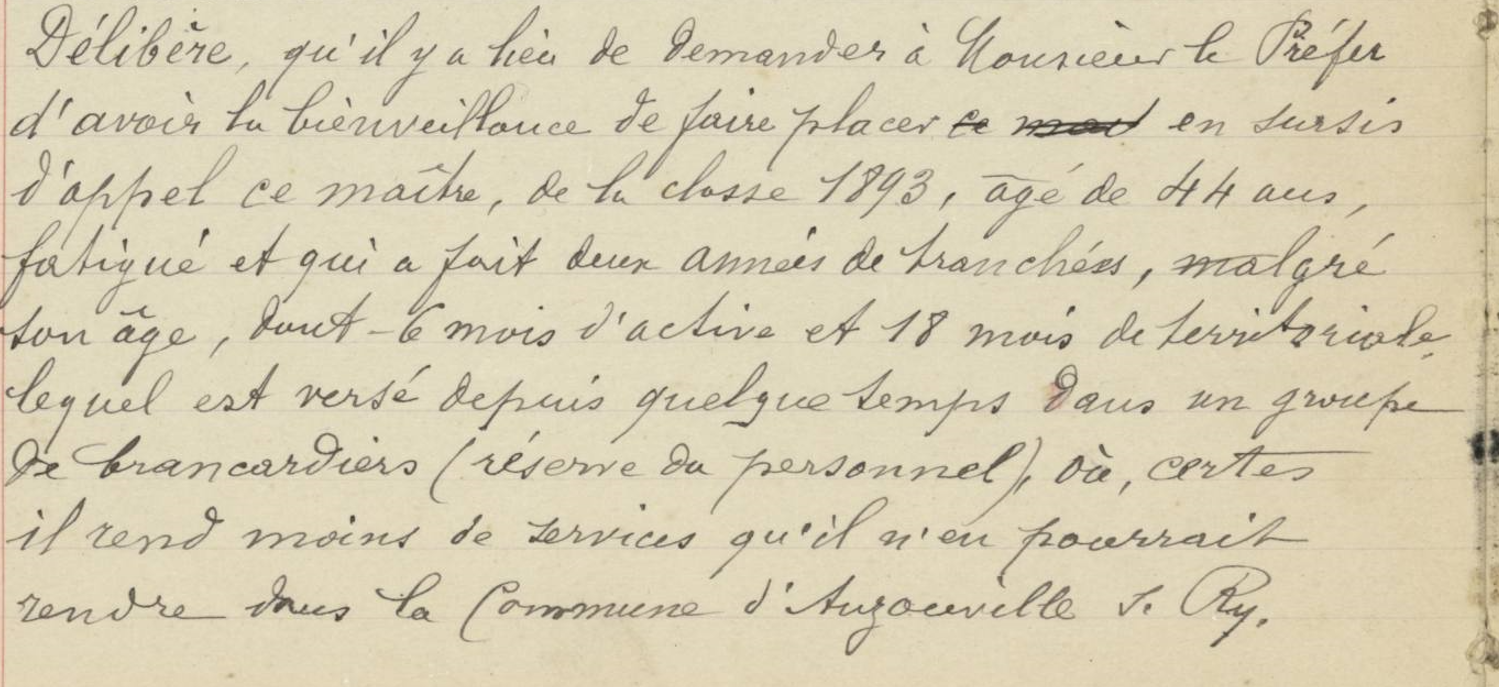 Délibère, qu'il y a lieu de demander à Monsieur le Préfet
d'avoir la bienveillance de faire placer ce en sursis
d'appel ce maître, de la classe 1893, âgé de 44 ans,
fatigué et qui a fait deux années de tranchées, malgré
son âge, dont - 6 mois d'active et 18 mois de territoriale,
lequel est versé depuis quelque temps dans un groupe
de brancardiers (réserve du personnel), où, certes
il rend moins de services qu'il n'en pourrait
rendre dans la Commune d'Auzouville s. Ry.